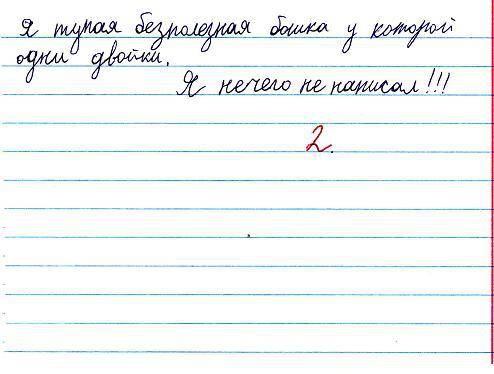 Я тупая безполезная бошка у которой
одни двойки.
Я нечего не написал!!!
2.